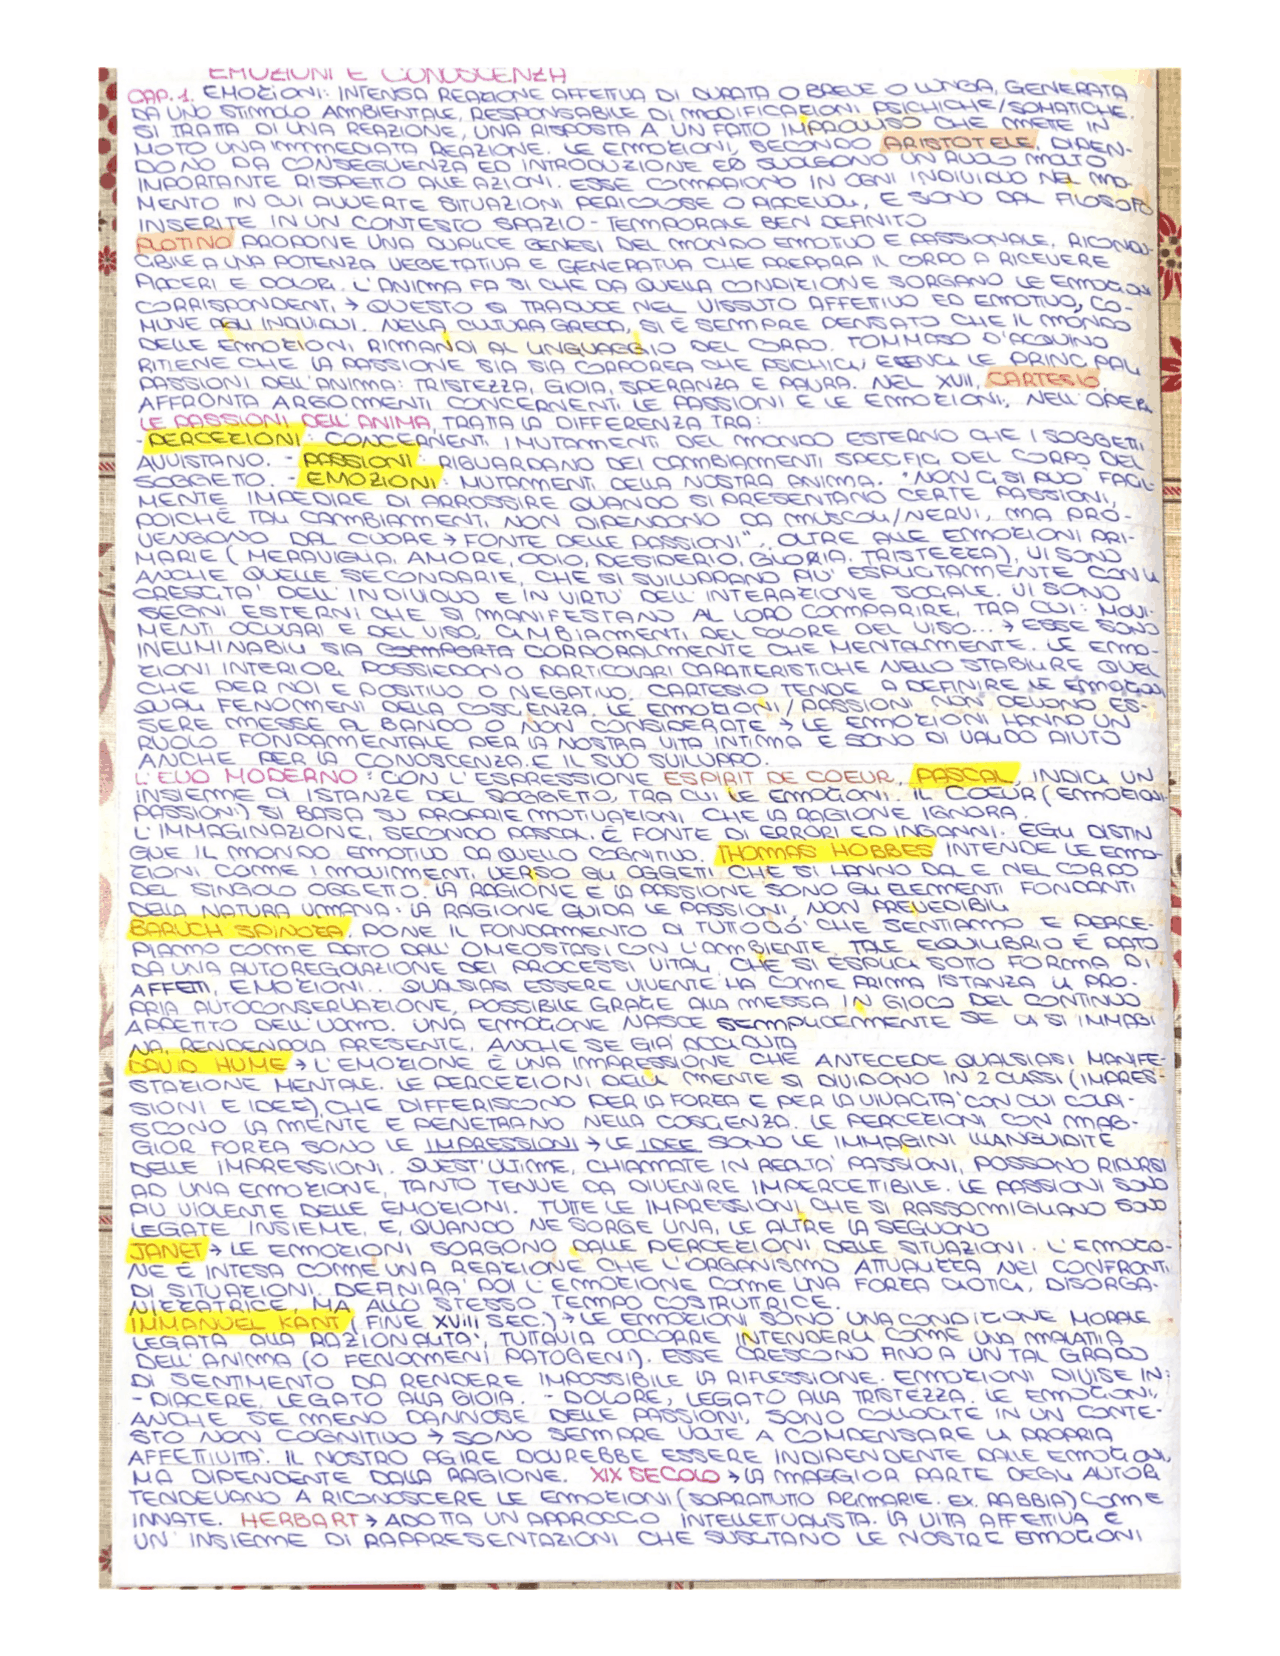 EMOZIONI E CONOSCENZA
CAP. 1. EMOZIONI: INTENSA REAZIONE AFFETTIVA DI DURATA O BREVE O LUNGA, GENERATA
DA UNO STIMOLO AMBIENTALE, RESPONSABILE DI MODIFICAZIONI PSICHICHE/SOMATICHE.
SI TRATTA DI UNA REAZIONE, UNA RISPOSTA A UN FATTO IMPROVVISO CHE METTE IN
MOTO UNA IMMEDIATA REAZIONE. LE EMOZIONI, SECONDO ARISTOTELE, DIPEN-
DONO DA CONSEGUENZA ED INTRODUZIONE ED SVOLGONO UN RUOLO MOLTO
IMPORTANTE RISPETTO ALLE AZIONI. ESSE COMPAIONO IN OGNI INDIVIDUO NEL MO-
MENTO IN CUI AVVERTE SITUAZIONI PERICOLOSE O PIACEVOLI, E SONO DAL FILOSOFO
INSERITE IN UN CONTESTO SPAZIO-TEMPORALE BEN DEFINITO
PLOTINO PROPONE UNA DUPLICE GENESI DEL MONDO EMOTIVO E PASSIONALE, RICONDU-
CIBILE A UNA POTENZA VEGETATIVA E GENERATIVA CHE PREPARA IL CORPO A RICEVERE
PIACERI E DOLORI. L'ANIMA FA SI CHE DA QUELLA CONDIZIONE SORGANO LE EMOZIONI
CORRISPONDENTI. → QUESTO SI TRADUCE NEL VISSUTO AFFETTIVO ED EMOTIVO, CO-
MUNE AGLI INDIVIDUI. NELLA CULTURA GRECA, SI È SEMPRE PENSATO CHE IL MONDO
DELLE EMOZIONI RIMANDI AL LINGUAGGIO DEL CORPO. TOMMASO D'AQUINO
RITIENE CHE LA PASSIONE SIA SIA CORPOREA CHE PSICHICA; ELENCA LE PRINCIPALI
PASSIONI DELL'ANIMA: TRISTEZZA, GIOIA, SPERANZA E PAURA. NEL XVII, CARTESIO,
AFFRONTA ARGOMENTI CONCERNENTI LE PASSIONI E LE EMOZIONI, NELL'OPERA
LE PASSIONI DELL'ANIMA, TRATTA LA DIFFERENZA TRA:
- PERCEZIONI: CONCERNENTI I MUTAMENTI DEL MONDO ESTERNO CHE I SOGGETTI
AVVISTANO. - PASSIONI: RIGUARDANO DEI CAMBIAMENTI SPECIFICI DEL CORPO DEL
SOGGETTO. - EMOZIONI: MUTAMENTI DELLA NOSTRA ANIMA. "NON CI SI PUÒ FACIL-
MENTE IMPEDIRE DI ARROSSIRE QUANDO SI PRESENTANO CERTE PASSIONI,
POICHÈ TALI CAMBIAMENTI NON DIPENDONO DA MUSCOLI/NERVI, MA PRO-
VENGONO DAL CUORE → FONTE DELLE PASSIONI". OLTRE ALLE EMOZIONI PRI-
MARIE (MERAVIGLIA, AMORE, ODIO, DESIDERIO, GLORIA, TRISTEZZA), VI SONO
ANCHE QUELLE SECONDARIE, CHE SI SVILUPPANO PIU' ESPLICITAMENTE CON LA
CRESCITA' DELL'INDIVIDUO E IN VIRTU' DELL'INTERAZIONE SOCIALE. VI SONO
SEGNI ESTERNI CHE SI MANIFESTANO AL LORO COMPARIRE, TRA CUI: MOVI-
MENTI OCULARI E DEL VISO, CAMBIAMENTI DEL COLORE DEL VISO... → ESSE SONO
INELIMINABILI SIA CORPORALMENTE CHE MENTALMENTE. LE EMO-
ZIONI INTERIORI POSSIEDONO PARTICOLARI CARATTERISTICHE NELLO STABILIRE QUEL
CHE PER NOI È POSITIVO O NEGATIVO. CARTESIO TENDE A DEFINIRE LE EMOZIONI
QUALI FENOMENI DELLA COSCIENZA. LE EMOZIONI/PASSIONI NON DEVONO ES-
SERE MESSE AL BANDO O NON CONSIDERATE → LE EMOZIONI HANNO UN
RUOLO FONDAMENTALE PER LA NOSTRA VITA INTIMA E SONO DI VALIDO AIUTO
ANCHE PER LA CONOSCENZA E IL SUO SVILUPPO.
L'EVO MODERNO: CON L'ESPRESSIONE ESPIRIT DE COEUR, PASCAL, INDICA UN
INSIEME DI ISTANZE DEL SOGGETTO, TRA CUI LE EMOZIONI. IL COEUR (EMOZIONI-
PASSIONI) SI BASA SU PROPRIE MOTIVAZIONI CHE LA RAGIONE IGNORA.
L'IMMAGINAZIONE, SECONDO PASCAL, È FONTE DI ERRORI ED INGANNI. EGLI DISTIN
GUE IL MONDO EMOTIVO DA QUELLO COGNITIVO. THOMAS HOBBES INTENDE LE EMO-
ZIONI COME I MOVIMENTI VERSO GLI OGGETTI CHE SI HANNO DAL E NEL CORPO
DEL SINGOLO OGGETTO. LA RAGIONE E LA PASSIONE SONO GLI ELEMENTI FONDANTI
DELLA NATURA UMANA: LA RAGIONE GUIDA LE PASSIONI, NON PREVEDIBILI
BARUCH SPINOZA, PONE IL FONDAMENTO DI TUTTOCIO' CHE SENTIAMO E PERCE-
PIAMO COME DATO DALL'OMEOSTASI CON L'AMBIENTE. TALE EQUILIBRIO È DATO
DA UNA AUTOREGOLAZIONE DEI PROCESSI VITALI, CHE SI ESPLICA SOTTO FORMA DI
AFFETTI, EMOZIONI... QUALSIASI ESSERE VIVENTE HA COME PRIMA ISTANZA LA PRO-
PRIA AUTOCONSERVAZIONE, POSSIBILE GRAZIE ALLA MESSA IN GIOCO DEL CONTINUO
APPETITO DELL'UOMO. UNA EMOZIONE NASCE SEMPLICEMENTE SE LA SI IMMAGI
NA, RENDENDOLA PRESENTE, ANCHE SE GIA' ACCADUTA
DAVID HUME → L'EMOZIONE È UNA IMPRESSIONE CHE ANTECEDE QUALSIASI MANIFE-
STAZIONE MENTALE. LE PERCEZIONI DELLA MENTE SI DIVIDONO IN 2 CLASSI (IMPRES-
SIONI E IDEE), CHE DIFFERISCONO PER LA FORZA E PER LA VIVACITA' CON CUI COLPI-
SCONO LA MENTE E PENETRANO NELLA COSCIENZA. LE PERCEZIONI CON MAG-
GIOR FORZA SONO LE IMPRESSIONI → LE IDEE SONO LE IMMAGINI ILLANGUIDITE
DELLE IMPRESSIONI. QUEST'ULTIME, CHIAMATE IN REALTA' PASSIONI, POSSONO RIDURSI
AD UNA EMOZIONE, TANTO TENUE DA DIVENIRE IMPERCETTIBILE. LE PASSIONI SONO
PIU VIOLENTE DELLE EMOZIONI. TUTTE LE IMPRESSIONI CHE SI RASSOMIGLIANO SONO
LEGATE INSIEME, E, QUANDO NE SORGE UNA, LE ALTRE LA SEGUONO
JANET → LE EMOZIONI SORGONO DALLE PERCEZIONI DELLE SITUAZIONI. L'EMOZIO-
NE È INTESA COME UNA REAZIONE CHE L'ORGANISMO ATTUALIZZA NEI CONFRONTI
DI SITUAZIONI. DEFINIRA' POI L'EMOZIONE COME UNA FORZA CAOTICA, DISORGA-
NIZZATRICE, MA ALLO STESSO TEMPO COSTRUTTRICE.
IMMANUEL KANT (FINE XVIII SEC.) → LE EMOZIONI SONO UNA CONDIZIONE MORALE
LEGATA ALLA RAZIONALITA', TUTTAVIA OCCORRE INTENDERLE COME UNA MALATTIA
DELL'ANIMA (O FENOMENI PATOGENI). ESSE CRESCONO FINO A UN TAL GRADO
DI SENTIMENTO DA RENDERE IMPOSSIBILE LA RIFLESSIONE. EMOZIONI DIVISE IN:
- PIACERE, LEGATO ALLA GIOIA. - DOLORE, LEGATO ALLA TRISTEZZA. LE EMOZIONI,
ANCHE SE MENO DANNOSE DELLE PASSIONI, SONO COLLOCATE IN UN CONTE-
STO NON COGNITIVO → SONO SEMPRE VOLTE A COMPENSARE LA PROPRIA
AFFETTIVITA'. IL NOSTRO AGIRE DOVREBBE ESSERE INDIPENDENTE DALLE EMOZIONI,
MA DIPENDENTE DALLA RAGIONE. XIX SECOLO → LA MAGGIOR PARTE DEGLI AUTORI
TENDEVANO A RICONOSCERE LE EMOZIONI (SOPRATUTTO PRIMARIE. EX. RABBIA) COME
INNATE. HERBART → ADOTTA UN APPROCCIO INTELLETTUALISTA. LA VITA AFFETTIVA È
UN'INSIEME DI RAPPRESENTAZIONI CHE SUSCITANO LE NOSTRE EMOZIONI